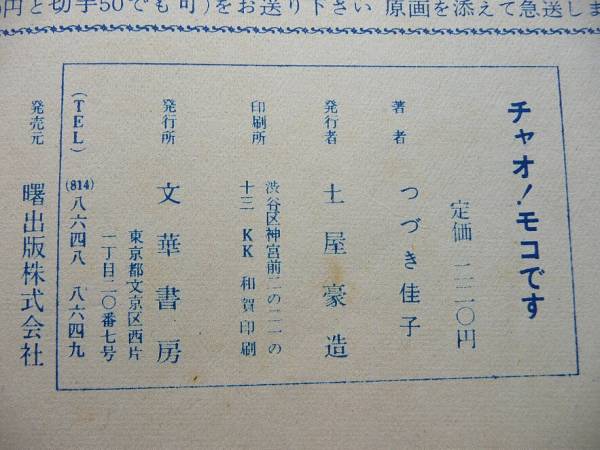 円と切手50でも可)をお送り下さい 原画を添えて急送しま
チャオ!モコです
定価 二二〇円
著者 つづき佳子
発行者 土屋豪造
印刷所 渋谷区神宮前二の二一の
十三 KK 和賀印刷
発行所 文華書房
東京都文京区西片
一丁目二〇番七号
(TEL) (814)八六四八 八六四九
発売元 曙出版株式会社